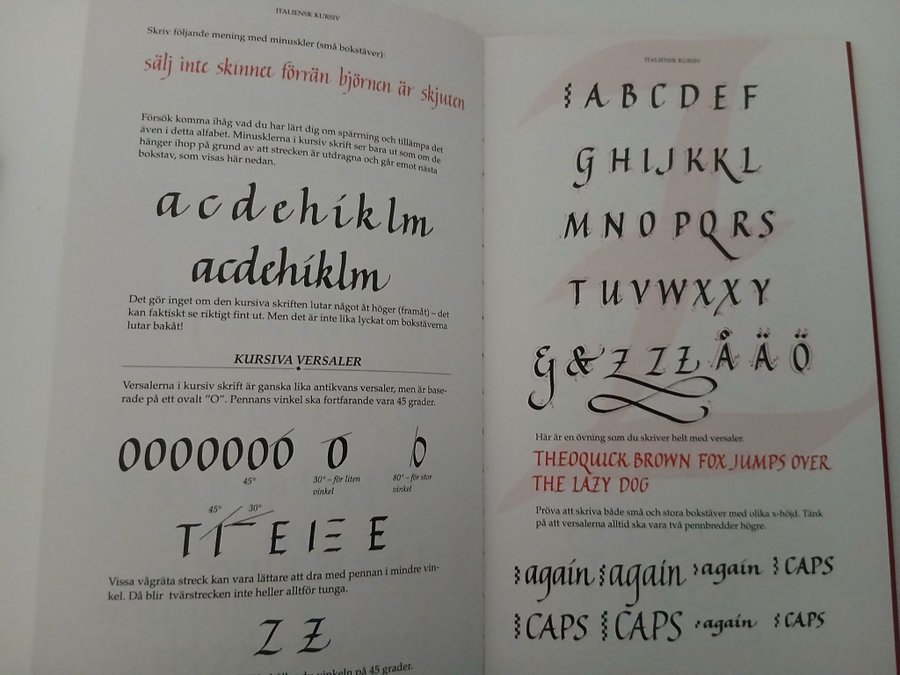 ITALIENSK KURSIV
Skriv följande mening med minuskler (små bokstäver):
sälj inte skinnet förrän björnen är skjuten
Försök komma ihåg vad du har lärt dig om spärrning och tillämpa det
även i detta alfabet. Minusklerna i kursiv skrift ser bara ut som om de
hänger ihop på grund av att strecken är utdragna och går emot nästa
bokstav, som visas här nedan.
a c d e h i k l m
acdehiklm
Det gör inget om den kursiva skriften lutar något åt höger (framåt) – det
kan faktiskt se riktigt fint ut. Men det är inte lika lyckat om bokstäverna
lutar bakåt!
KURSIVA VERSALER
Versalerna i kursiv skrift är ganska lika antikvans versaler, men är base-
rade på ett ovalt "O". Pennans vinkel ska fortfarande vara 45 grader.
OOOOOOO O O
45°
30° – för liten
vinkel
80° – för stor
vinkel
45° 30°
T E E
Vissa vågräta streck kan vara lättare att dra med pennan i mindre vin-
kel. Då blir tvärstrecken inte heller alltför tunga.
Z Z
vinkeln på 45 grader.
ITALIENSK KURSIV
A B C D E F
G H I J K K L
M N O P Q R S
T U V W X X Y
G & Z Z Z Å Ä Ö
Här är en övning som du skriver helt med versaler.
THEOQUICK BROWN FOX JUMPS OVER
THE LAZY DOG
Pröva att skriva både små och stora bokstäver med olika x-höjd. Tänk
på att versalerna alltid ska vara två pennbredder högre.
again again again CAPS
CAPS CAPS again CAPS